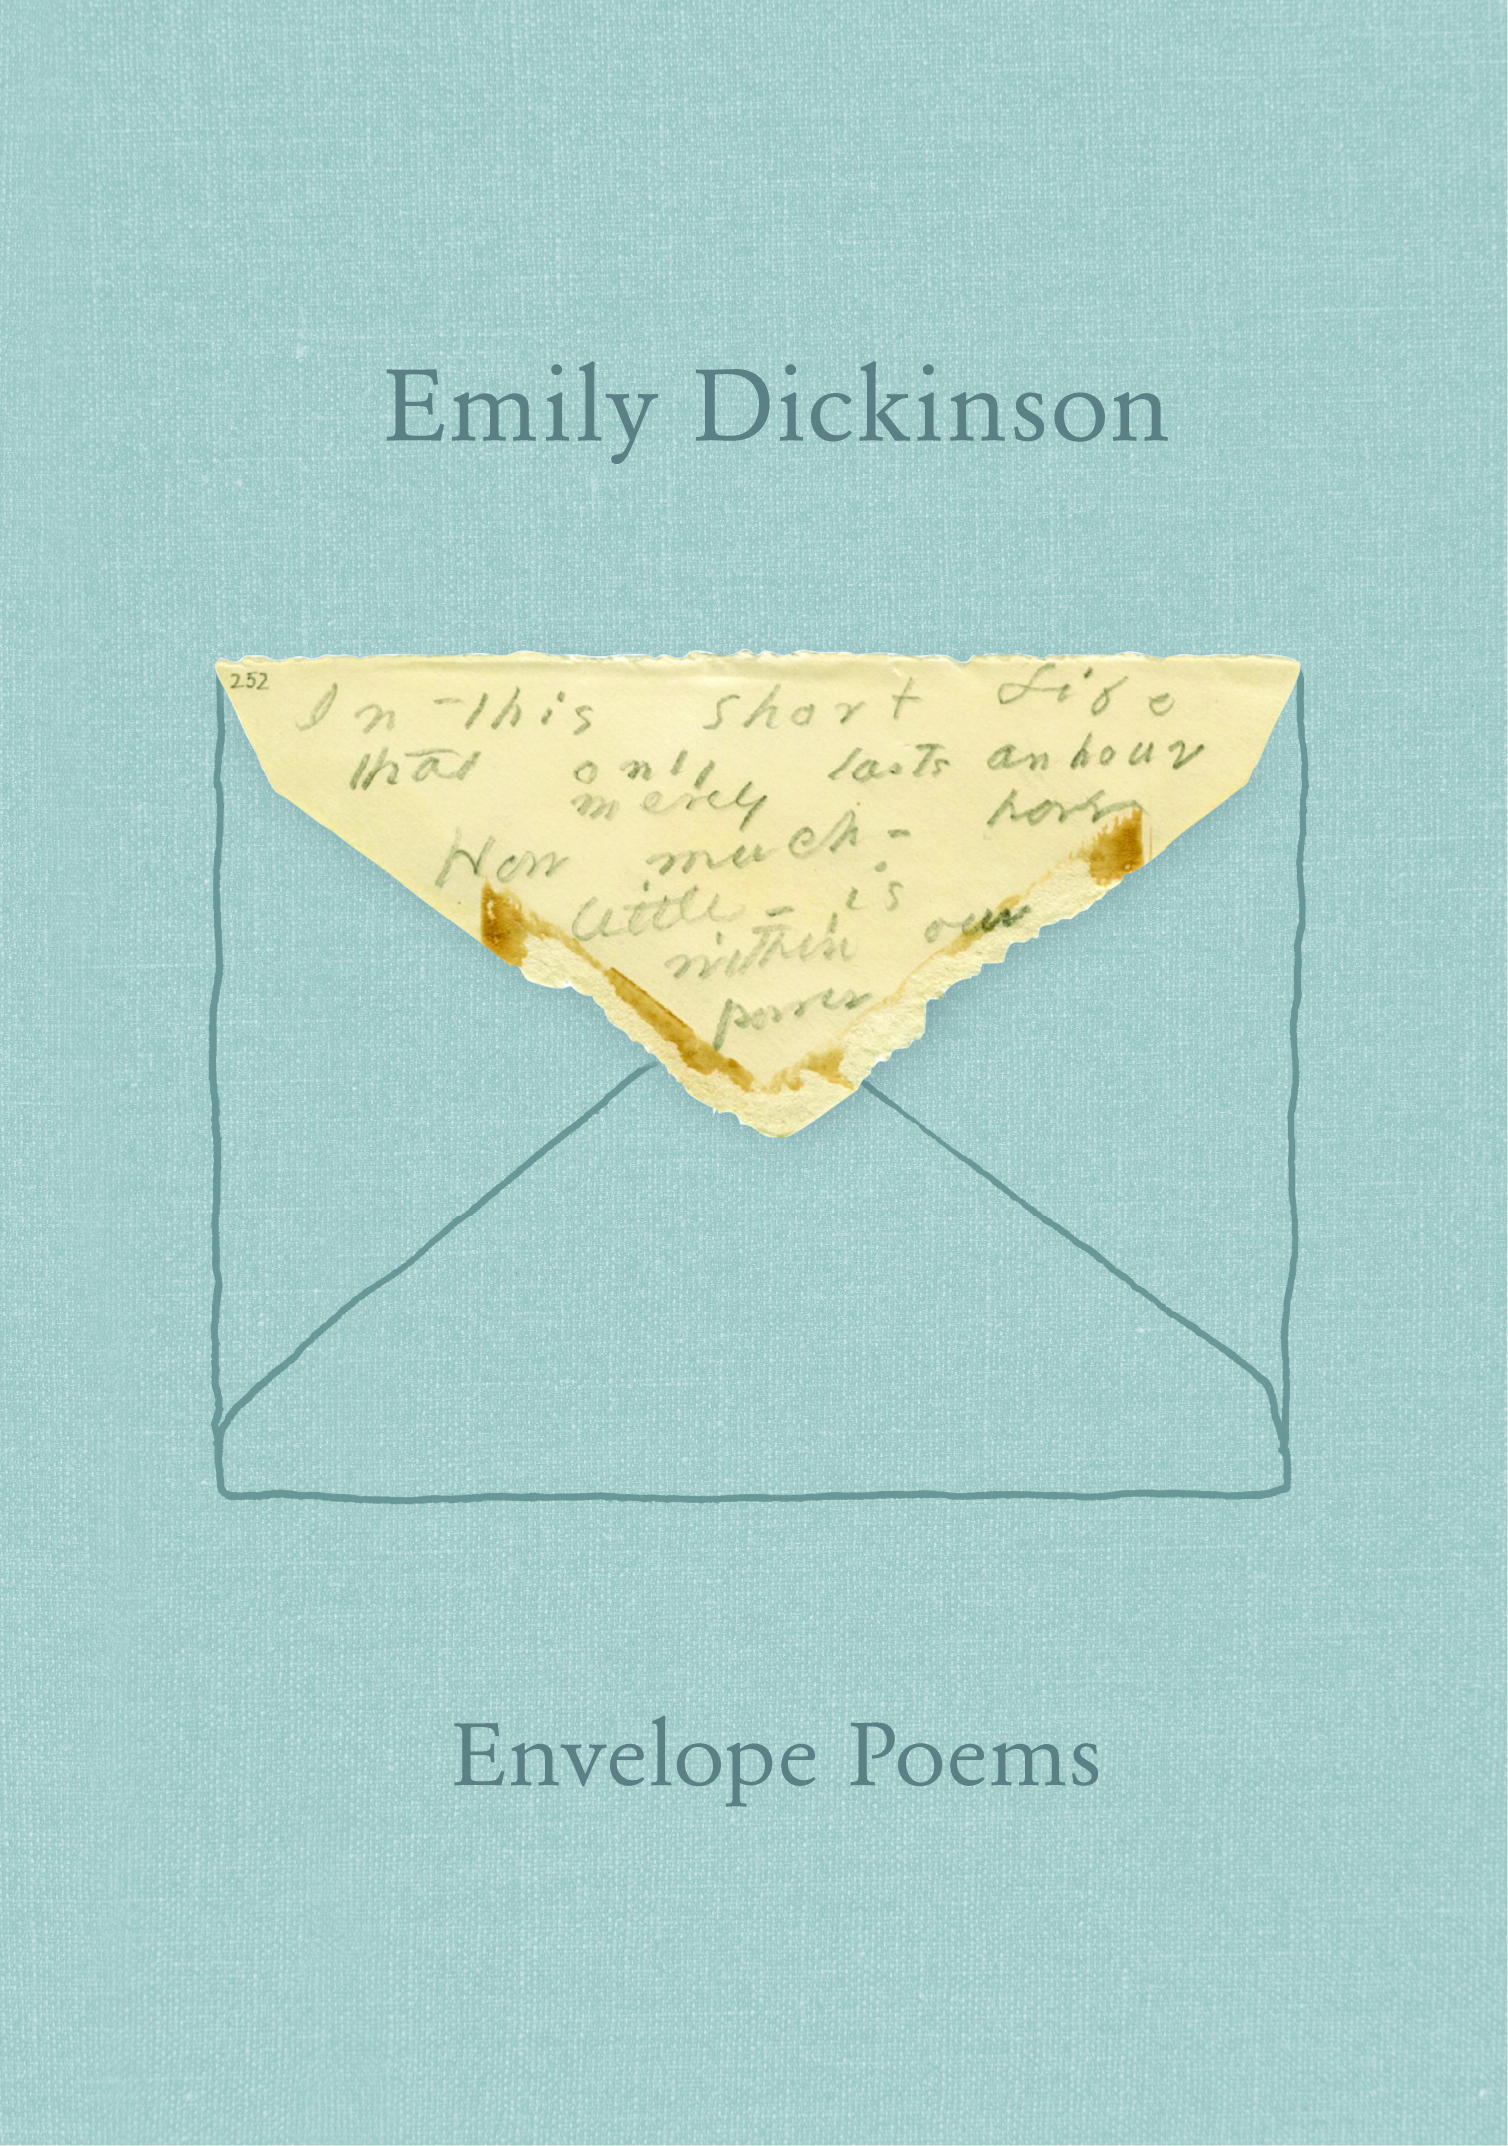 Emily Dickinson
252
In this short Life
that only lasts an hour
merely
How much - how
little - is
within our
power
Envelope Poems